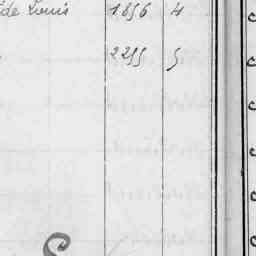 de Louis 1856 4
2255 5
S